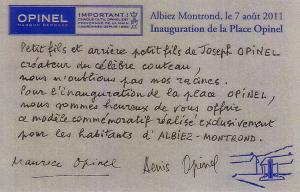 OPINEL
MARQUE DÉPOSÉE
IMPORTANT!
Albiez Montrond, le 7 août 2011
Inauguration de la Place Opinel
Petit fils et arrière petit fils de Joseph OPINEL
créateur du célèbre couteau,
nous n'oublions pas nos racines.
Pour l'inauguration de la place OPINEL,
nous sommes heureux de vous offrir
ce modèle commémoratif réalisé exclusivement
pour les habitants d'ALBIEZ-MONTROND.
Maurice Opinel Denis Opinel